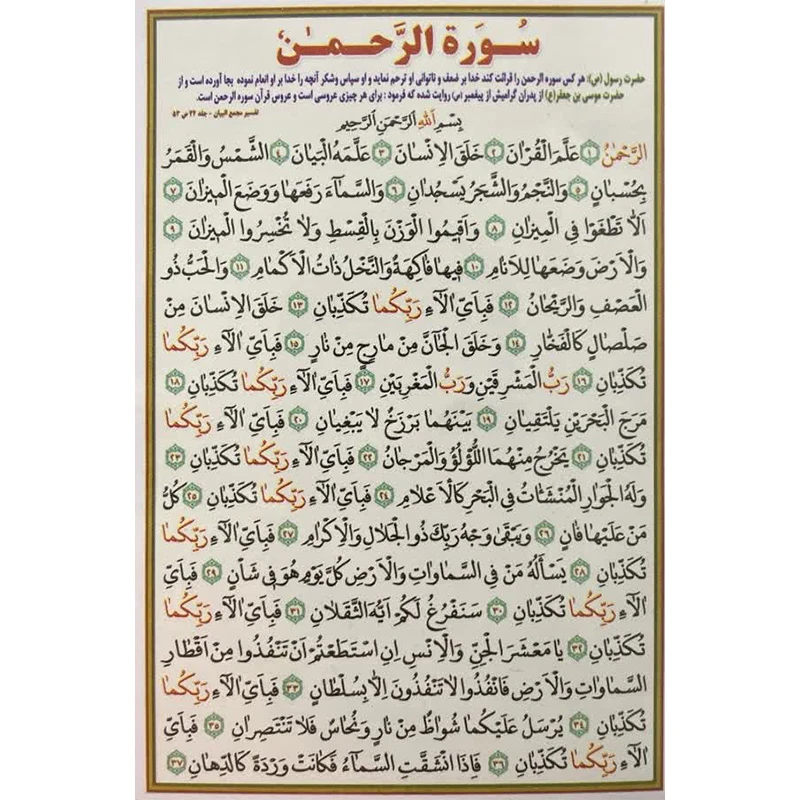 سُورَة الرَّحمٰن
حضرت رسول (ص): هر کس سوره الرحمن را قرائت کند خدا بر ضعف و ناتوانی او ترحم نماید و او سپاس وشکر آنچه را خدا بر او انعام نموده بجا آورده است و از
حضرت موسی بن جعفر(ع) از پدران گرامیش از پیغمبر (ص) روایت شده که فرمود : برای هر چیزی عروسی است و عروس قرآن سوره الرحمن است.
تفسیر مجمع البیان - جلد ۲۴ ص ۵۳
بِسْمِ اللهِ الرَّحْمَنِ الرَّحِيمِ
الرَّحْمٰنُ ۱ عَلَّمَ الْقُرْاٰنَ ۲ خَلَقَ الْاِنْسَانَ ۳ عَلَّمَهُ الْبَيَانَ ۴ الشَّمْسُ وَالْقَمَرُ
بِحُسْبَانٍ ۵ وَالنَّجْمُ وَالشَّجَرُ يَسْجُدَانِ ۶ وَالسَّمَاءَ رَفَعَهَا وَوَضَعَ الْمِيزَانَ ۷
اَلَّا تَطْغَوْا فِي الْمِيزَانِ ۸ وَاَقِيمُوا الْوَزْنَ بِالْقِسْطِ وَلَا تُخْسِرُوا الْمِيزَانَ ۹
وَالْاَرْضَ وَضَعَهَا لِلْاَنَامِ ۱۰ فِيهَا فَاكِهَةٌ وَالنَّخْلُ ذَاتُ الْاَكْمَامِ ۱۱ وَالْحَبُّ ذُو
الْعَصْفِ وَالرَّيْحَانُ ۱۲ فَبِاَيِّ اٰلَاءِ رَبِّكُمَا تُكَذِّبَانِ ۱۳ خَلَقَ الْاِنْسَانَ مِنْ
صَلْصَالٍ كَالْفَخَّارِ ۱۴ وَخَلَقَ الْجَانَّ مِنْ مَارِجٍ مِنْ نَارٍ ۱۵ فَبِاَيِّ اٰلَاءِ رَبِّكُمَا
تُكَذِّبَانِ ۱۶ رَبُّ الْمَشْرِقَيْنِ وَرَبُّ الْمَغْرِبَيْنِ ۱۷ فَبِاَيِّ اٰلَاءِ رَبِّكُمَا تُكَذِّبَانِ ۱۸
مَرَجَ الْبَحْرَيْنِ يَلْتَقِيَانِ ۱۹ بَيْنَهُمَا بَرْزَخٌ لَا يَبْغِيَانِ ۲۰ فَبِاَيِّ اٰلَاءِ رَبِّكُمَا
تُكَذِّبَانِ ۲۱ يَخْرُجُ مِنْهُمَا اللُّؤْلُؤُ وَالْمَرْجَانُ ۲۲ فَبِاَيِّ اٰلَاءِ رَبِّكُمَا تُكَذِّبَانِ ۲۳
وَلَهُ الْجَوَارِ الْمُنْشَئَاتُ فِي الْبَحْرِ كَالْاَعْلَامِ ۲۴ فَبِاَيِّ اٰلَاءِ رَبِّكُمَا تُكَذِّبَانِ ۲۵ كُلُّ
مَنْ عَلَيْهَا فَانٍ ۲۶ وَيَبْقَىٰ وَجْهُ رَبِّكَ ذُو الْجَلَالِ وَالْاِكْرَامِ ۲۷ فَبِاَيِّ اٰلَاءِ رَبِّكُمَا
تُكَذِّبَانِ ۲۸ يَسْأَلُهُ مَنْ فِي السَّمَاوَاتِ وَالْاَرْضِ كُلَّ يَوْمٍ هُوَ فِي شَأْنٍ ۲۹ فَبِاَيِّ
اٰلَاءِ رَبِّكُمَا تُكَذِّبَانِ ۳۰ سَنَفْرُغُ لَكُمْ اَيُّهَ الثَّقَلَانِ ۳۱ فَبِاَيِّ اٰلَاءِ رَبِّكُمَا
تُكَذِّبَانِ ۳۲ يَا مَعْشَرَ الْجِنِّ وَالْاِنْسِ اِنِ اسْتَطَعْتُمْ اَنْ تَنْفُذُوا مِنْ اَقْطَارِ
السَّمَاوَاتِ وَالْاَرْضِ فَانْفُذُوا لَا تَنْفُذُونَ اِلَّا بِسُلْطَانٍ ۳۳ فَبِاَيِّ اٰلَاءِ رَبِّكُمَا
تُكَذِّبَانِ ۳۴ يُرْسَلُ عَلَيْكُمَا شُوَاظٌ مِنْ نَارٍ وَنُحَاسٌ فَلَا تَنْتَصِرَانِ ۳۵ فَبِاَيِّ
اٰلَاءِ رَبِّكُمَا تُكَذِّبَانِ ۳۶ فَاِذَا انْشَقَّتِ السَّمَاءُ فَكَانَتْ وَرْدَةً كَالدِّهَانِ ۳۷